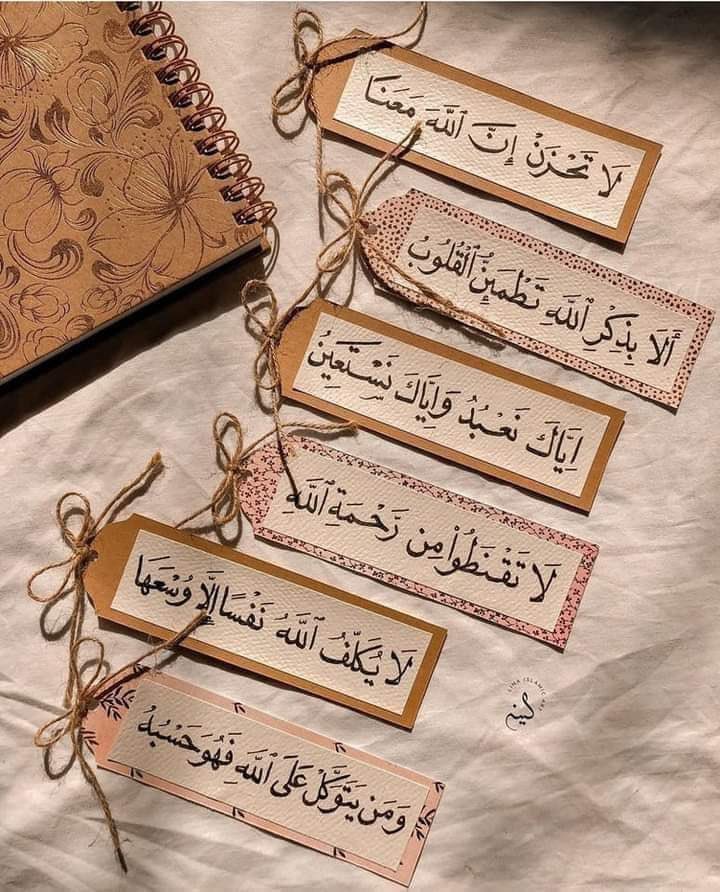 لَا تَحْزَنْ إِنَّ ٱللَّهَ مَعَنَا
أَلَا بِذِكْرِ ٱللَّهِ تَطْمَئِنُّ ٱلْقُلُوبُ
اِيَّاكَ نَعْبُدُ وَاِيَّاكَ نَسْتَعِينُ
لَا تَقْنَطُوا۟ مِن رَّحْمَةِ ٱللَّهِ
لَا يُكَلِّفُ ٱللَّهُ نَفْسًا إِلَّا وُسْعَهَا
وَمَن يَتَوَكَّلْ عَلَى ٱللَّهِ فَهُوَ حَسْبُهُ
LINA ISLAMIC ART